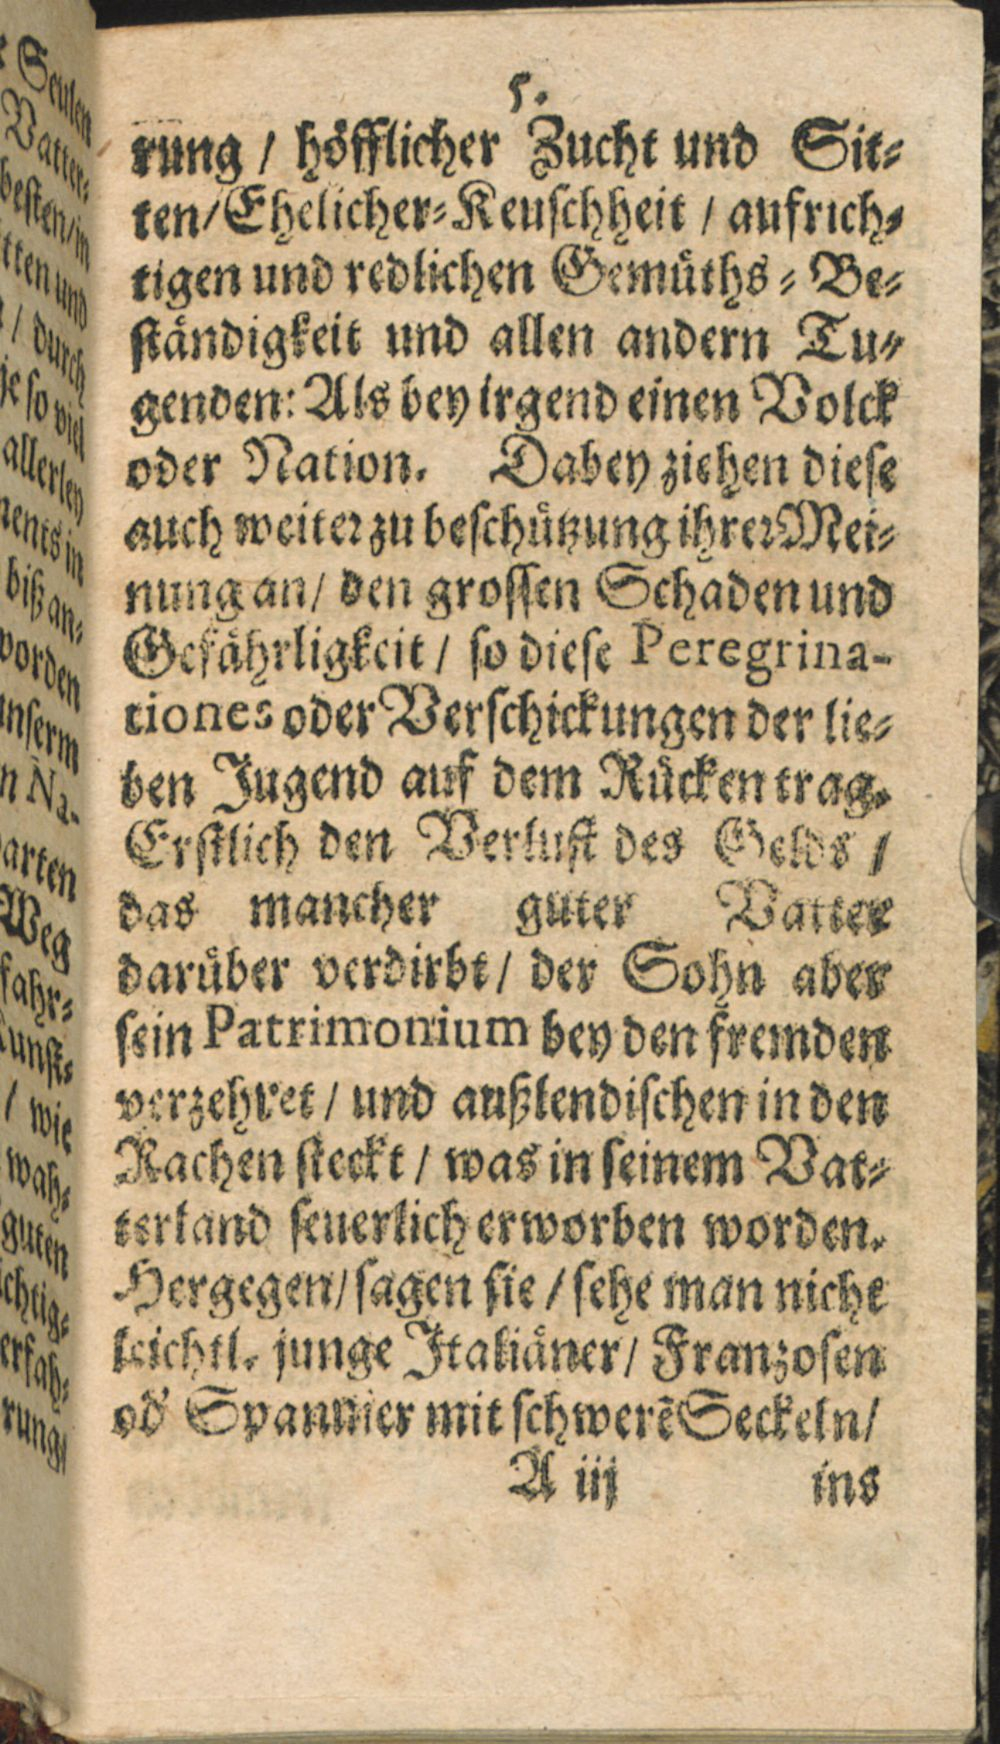 5.
rung / höfflicher Zucht und Sit-
ten/Ehelicher-Keuschheit / aufrich-
tigen und redlichen Gemüths-Be-
ständigkeit und allen andern Tu-
genden: Als bey irgend einen Volck
oder Nation. Dabey ziehen diese
auch weiter zu beschützung ihrer Mei-
nung an/ den grossen Schaden und
Gefährligkeit / so diese Peregrina-
tiones oder Verschickungen der lie-
ben Jugend auf dem Rücken trag.
Erstlich den Verlust des Gelds /
das mancher guter Vatter
darüber verdirbt/ der Sohn aber
sein Patrimonium bey den fremden
verzehret / und außlendischen in den
Rachen steckt / was in seinem Vat-
terland seuerlich erworben worden.
Hergegen/ sagen sie / sehe man nicht
leichtl. junge Italiäner/ Franzosen
od' Spannier mit schwerẽ Seckeln/
A iij ins
Seulen
Vatter-
besten/in
tten und
/ durch
je so viel
allerley
ments in
biß an-
worden
unserm
n Na-
arten
Weg
fahr-
Kunst-
/ wie
wah-
guten
chtig-
erfah-
rung/